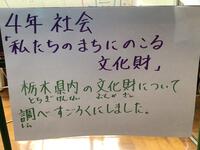 4年 社会
「私たちのまちにのこる
文化財」
栃木県内の文化財について
とちぎけんない ぶんかざい
調べすごろくにしました。
しら